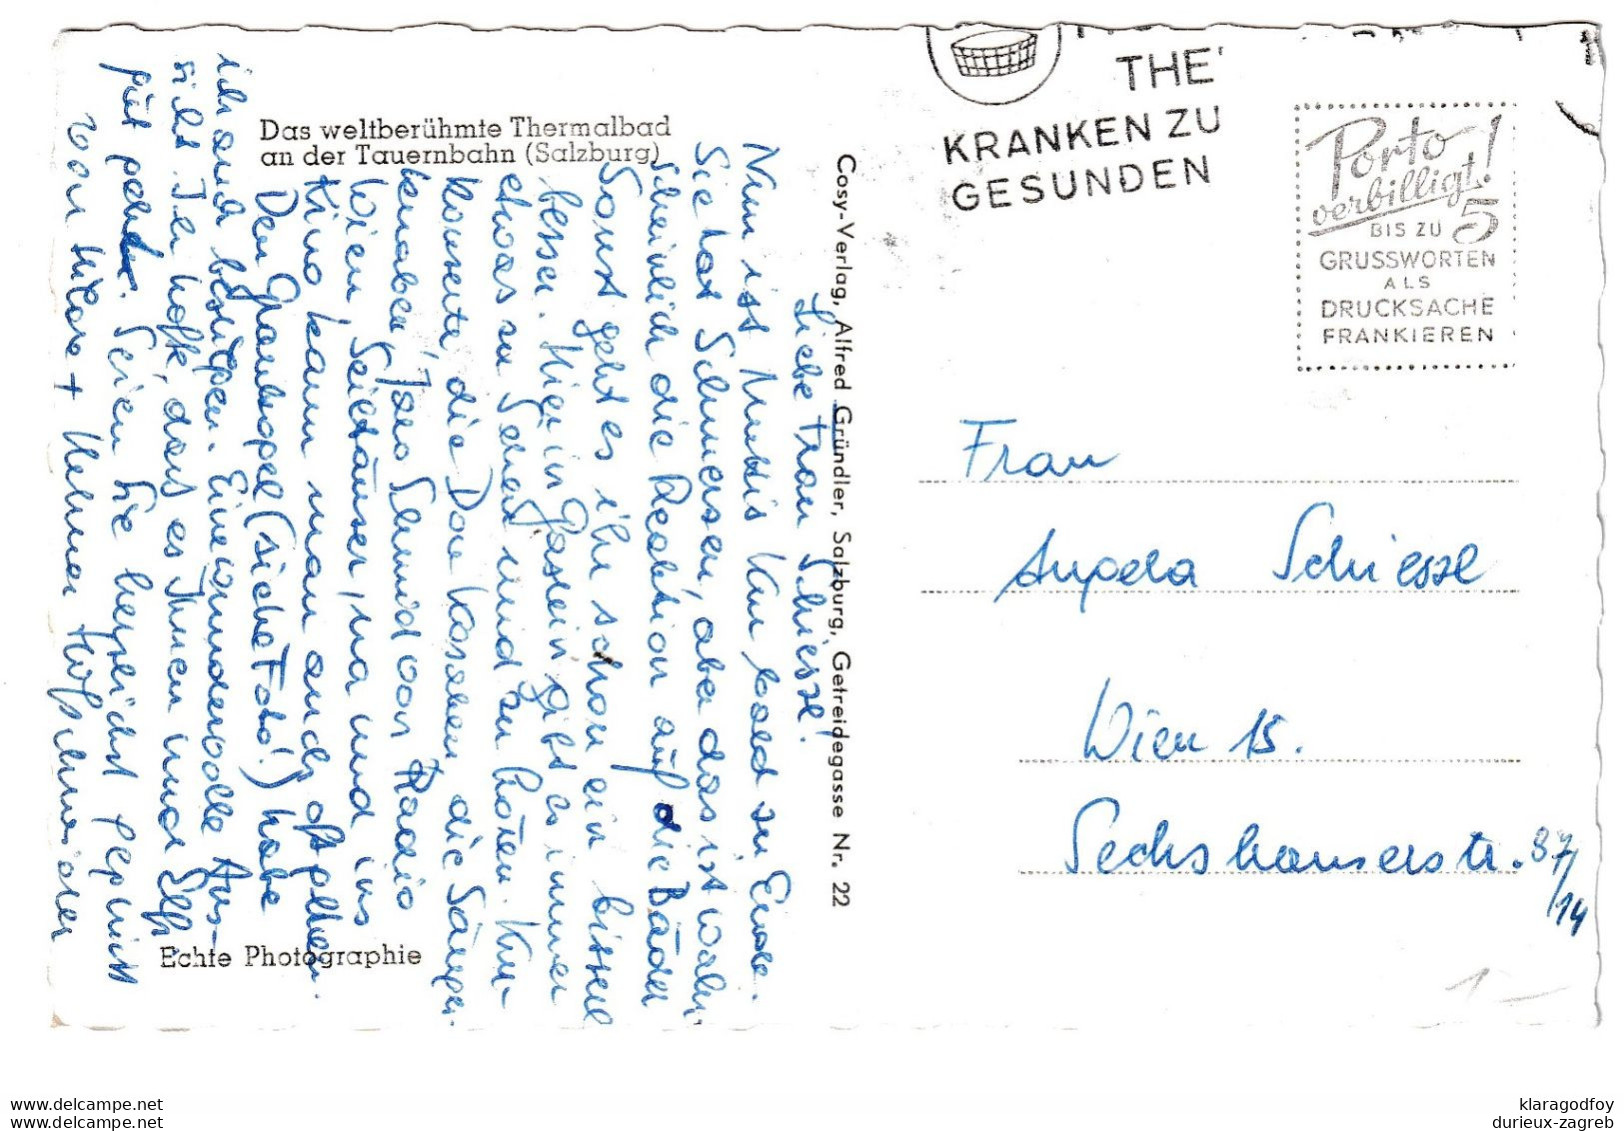 THE
KRANKEN ZU
GESUNDEN
Porto
verbilligt!
BIS ZU 5
GRUSSWORTEN
ALS
DRUCKSACHE
FRANKIEREN
Das weltberühmte Thermalbad
an der Tauernbahn (Salzburg)
Echte Photographie
Cosy-Verlag, Alfred Gründler, Salzburg, Getreidegasse Nr. 22
Liebe Frau Schiessl!
Nun ist Muttis Kur bald zu Ende.
Sie hat Schmerzen, aber das ist wahr-
scheinlich die Reaktion auf die Bäder
Sonst geht es ihr schon ein bisserl
besser. Hier in Gastein gibt es immer
etwas zu Sehen und zu hören. Kur-
konzerte, die Don Kosaken, die Sänger-
knaben, Schmid von Radio
Wien, Seiltänzer, na und ins
Kino kann man auch oft gehen.
Den Graukogel (siehe Foto!) habe
ich auch bestiegen. Eine wundervolle Aus-
sicht. Ich hoffe, dass es Ihnen und
gut geht. Seien Sie herzlichst gegrüsst
von +
Frau
Angela Schiessl
Wien 15.
Sechshauserstr. 37/14
klaragodfoy
durieux-zagreb
klaragodfoy on www.delcampe.net
durieux-zagreb on www.delcampe.net